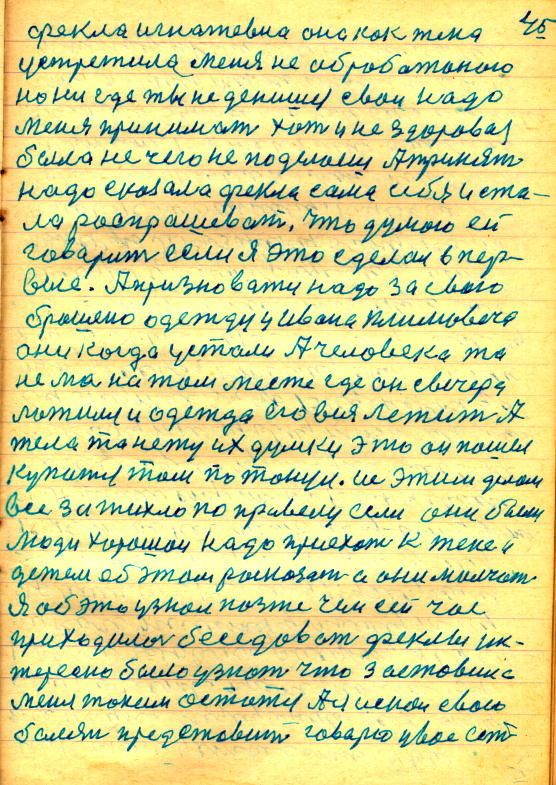 45
фекла игнатевна она как жена
устретила меня не обработаною
но ни где ты не денишя свои надо
меня принимат хот и не здоровая
была не чего не поделаеш А принят
надо сказала фекла сама себя и ста-
ла распрашеват. что думаю ей
говарит если я это сделал впер-
вые. А признаватя надо за свою
брошено одежду у ивана климовеча
они когда устали А человека та
нема на том месте где он свечера
ложиля и одежда его вся лежит А
тела та нету их думки это он пошел
купатя там потонул. и с этим делам
все затихло по правелу если они были
люди хорошаи надо приехат к жене и
детем об этом расказат а они молчат
Я об это узнал позже чем сей час
приходилос беседоват феклы ин-
тересно было узнат что заставила
меня таким остатя А я искал свою
болези предствит говарю у вас ест